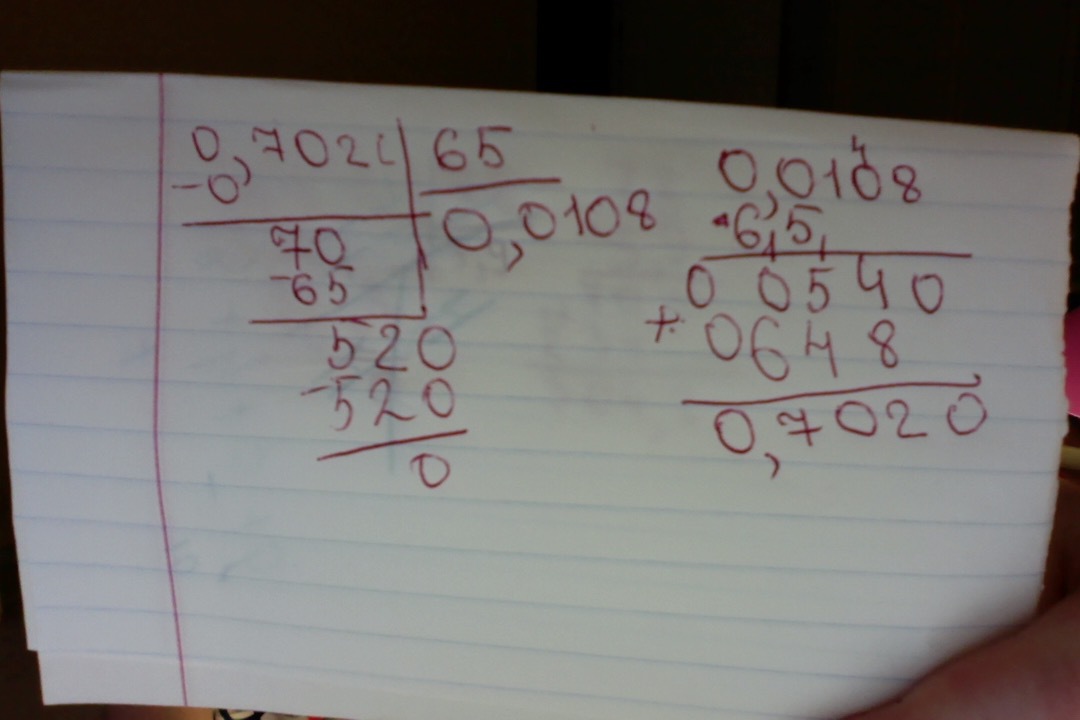 0,702 65
-0 0,0108
70
-65
520
-520
0
4
0,0108
·6,5
0 0540
+ 0648
0,7020